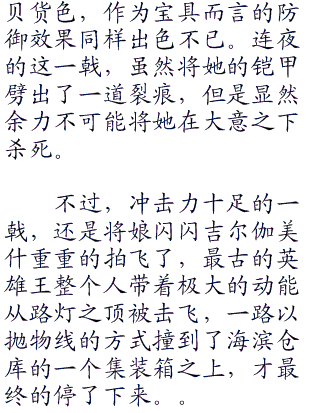 贝货色，作为宝具而言的防
御效果同样出色不已。连夜
的这一戟，虽然将她的铠甲
劈出了一道裂痕，但是显然
余力不可能将她在大意之下
杀死。
不过，冲击力十足的一
戟，还是将娘闪闪吉尔伽美
什重重的拍飞了，最古的英
雄王整个人带着极大的动能
从路灯之顶被击飞，一路以
抛物线的方式撞到了海滨仓
库的一个集装箱之上，才最
终的停了下来。。